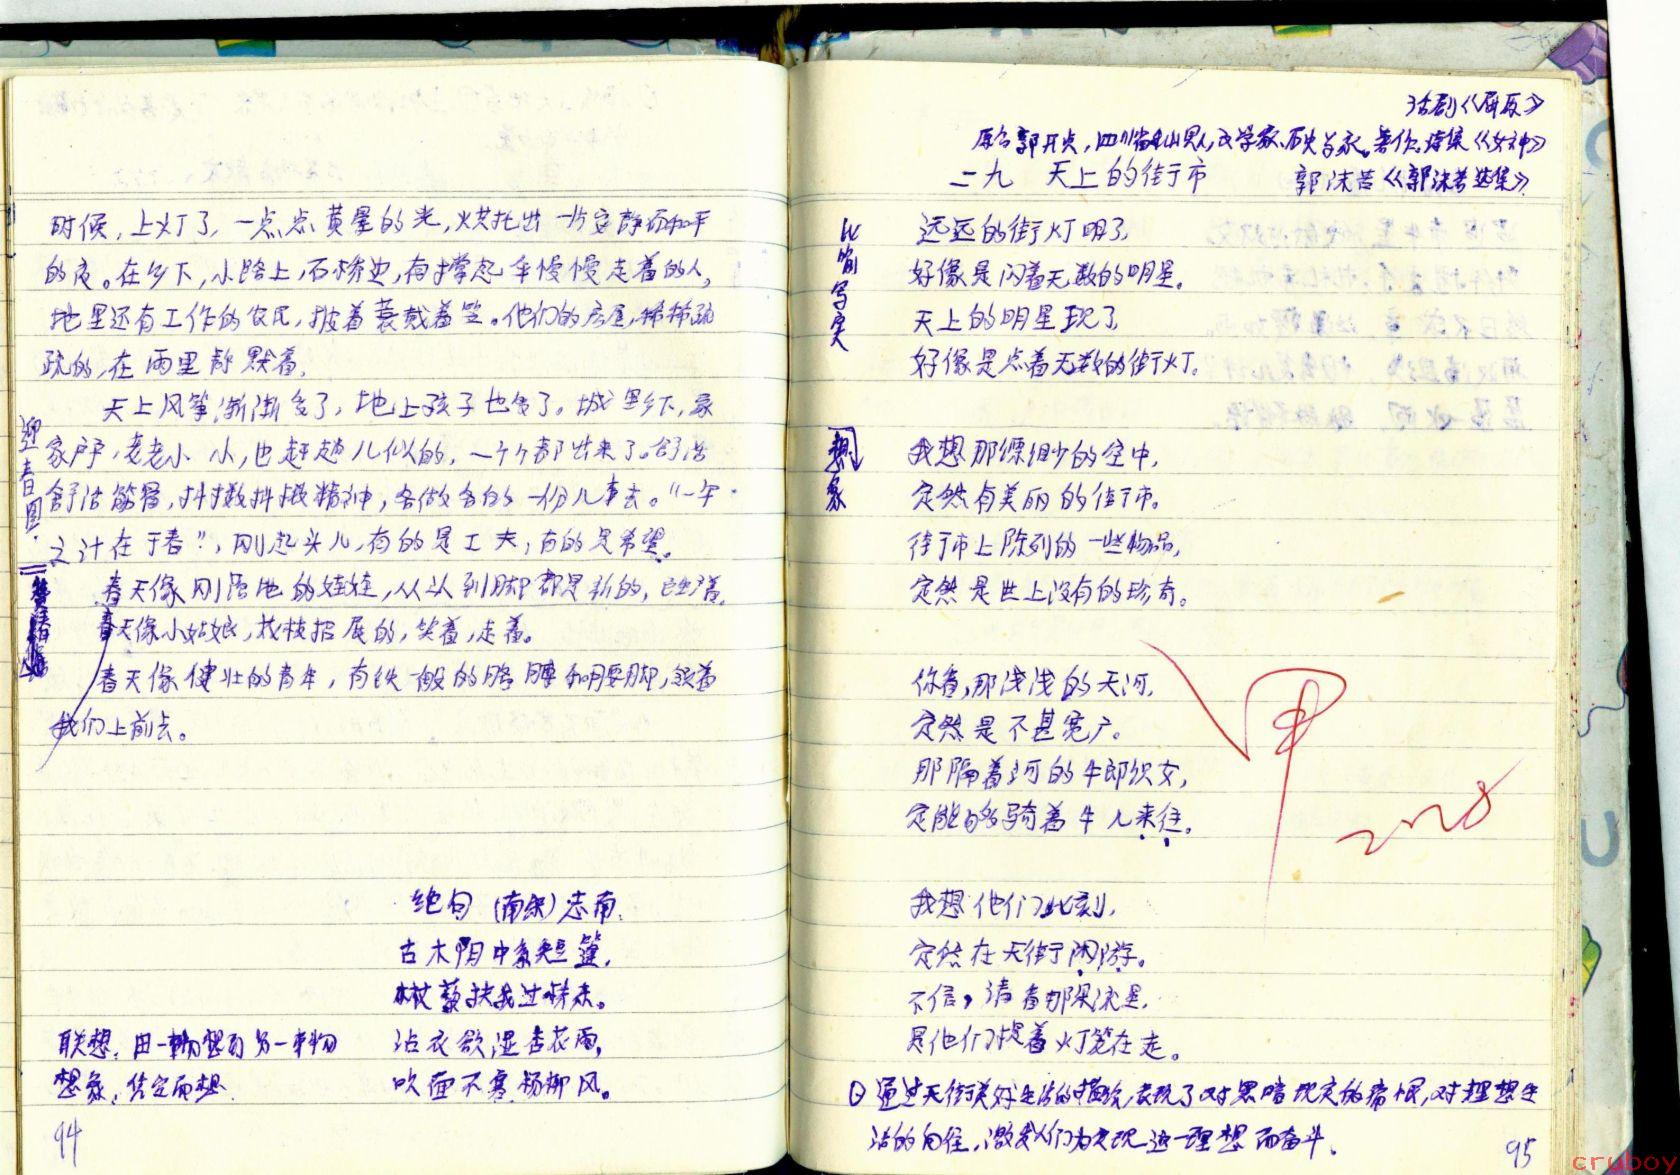 时候，上灯了，一点点黄晕的光，烘托出一片安静而和平
的夜。在乡下，小路上，石桥边，有撑起伞慢慢走着的人，
地里还有工作的农民，披着蓑戴着笠。他们的房屋，稀稀疏
疏的，在雨里静默着。
天上风筝渐渐多了，地上孩子也多了。城里乡下，家
家户户，老老小小，也赶趟儿似的，一个个都出来了。舒活
舒活筋骨，抖擞抖擞精神，各做各的一份儿事去。“一年
之计在于春”，刚起头儿，有的是工夫，有的是希望。
迎春图.
春天像刚落地的娃娃，从头到脚都是新的，
春天像小姑娘，花枝招展的，笑着，走着。
春天像健壮的青年，有铁一般的胳膊和腰脚，领着
我们上前去。
绝句 (南宋) 志南.
古木阴中系短篷，
杖藜扶我过桥东。
沾衣欲湿杏花雨，
吹面不寒杨柳风。
联想：由一事物想到另一事物
想象，凭空而想
94
话剧《屈原》
原名郭开贞，四川省乐山县人，文学家、历史学家。著作：诗集《女神》
二九 天上的街市 郭沫若《郭沫若选集》
比喻写实
远远的街灯明了，
好像是闪着无数的明星。
天上的明星现了，
好像是点着无数的街灯。
想象
我想那缥缈的空中，
定然有美丽的街市。
街市上陈列的一些物品，
定然是世上没有的珍奇。
你看，那浅浅的天河，
定然是不甚宽广。
那隔着河的牛郎织女，
定能够骑着牛儿来往。
甲
我想他们此刻，
定然在天街闲游。
不信，请看那朵流星，
是他们提着灯笼在走。
① 通过天街美好生活的描绘，表现了对黑暗现实的痛恨，对理想生
活的向往，激发人们为实现这一理想而奋斗.
95
cruboy